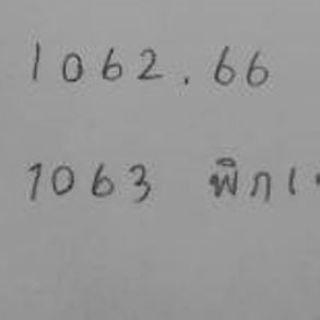 1062.66
1063 พิก